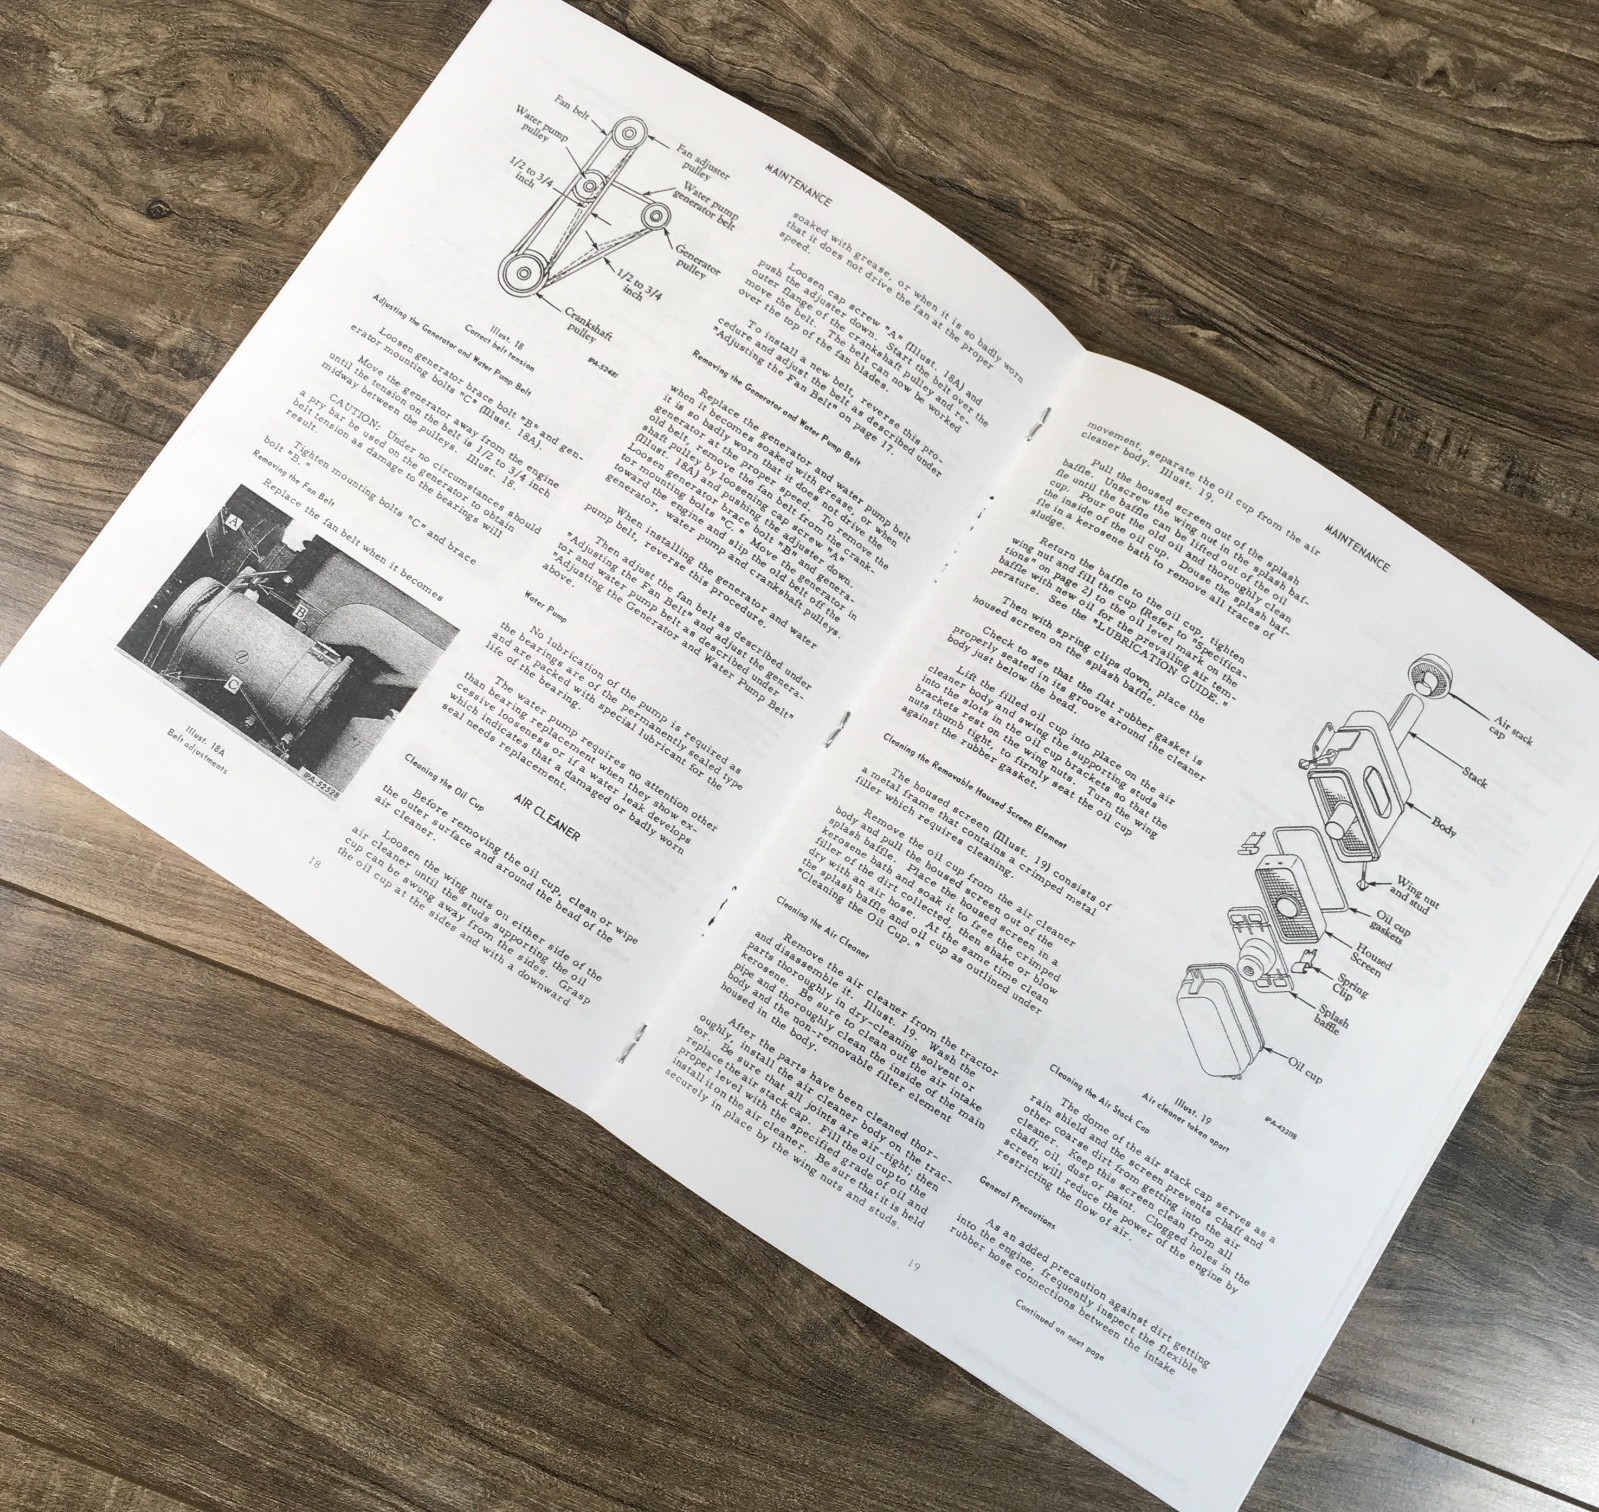 MAINTENANCE
Fan belt
Water pump
pulley
1/2 to 3/4
inch
Fan adjuster
pulley
Water pump
generator belt
Generator
pulley
1/2 to 3/4
inch
Crankshaft
pulley
IPA-52481
Illust. 18
Correct belt tension
Adjusting the Generator and Water Pump Belt
Loosen generator brace bolt "B" and gen-
erator mounting bolts "C" (Illust. 18A).
Move the generator away from the engine
until the tension on the belt is 1/2 to 3/4 inch
midway between the pulleys. Illust. 18.
CAUTION: Under no circumstances should
a pry bar be used on the generator to obtain
belt tension as damage to the bearings will
result.
Tighten mounting bolts "C" and brace
bolt "B."
Removing the Fan Belt
Replace the fan belt when it becomes
A
B
C
IPA-52528
Illust. 18A
Belt adjustments
soaked with grease, or when it is so badly worn
that it does not drive the fan at the proper
speed.
Loosen cap screw "A" (Illust. 18A) and
push the adjuster down. Start the belt over the
outer flange of the crankshaft pulley and re-
move the belt. The belt can now be worked
over the top of the fan blades.
To install a new belt, reverse this pro-
cedure and adjust the belt as described under
"Adjusting the Fan Belt" on page 17.
Removing the Generator and Water Pump Belt
Replace the generator and water pump belt
when it becomes soaked with grease, or when
it is so badly worn that it does not drive the
generator at the proper speed. To remove the
old belt, remove the fan belt from the crank-
shaft pulley by loosening cap screw "A"
(Illust. 18A) and pushing the adjuster down.
Loosen generator brace bolt "B" and genera-
tor mounting bolts "C." Move the generator in
toward the engine and slip the old belt off the
generator, water pump and crankshaft pulleys.
When installing the generator and water
pump belt, reverse this procedure.
Then adjust the fan belt as described under
"Adjusting the Fan Belt" and adjust the genera-
tor and water pump belt as described under
"Adjusting the Generator and Water Pump Belt"
above.
Water Pump
No lubrication of the pump is required as
the bearings are of the permanently sealed type
and are packed with special lubricant for the
life of the bearing.
The water pump requires no attention other
than bearing replacement when they show ex-
cessive looseness or if a water leak develops
which indicates that a damaged or badly worn
seal needs replacement.
AIR CLEANER
Cleaning the Oil Cup
Before removing the oil cup, clean or wipe
the outer surface and around the bead of the
air cleaner.
Loosen the wing nuts on either side of the
air cleaner until the studs supporting the oil
cup can be swung away from the sides. Grasp
the oil cup at the sides and with a downward
18
MAINTENANCE
movement, separate the oil cup from the air
cleaner body. Illust. 19.
Pull the housed screen out of the splash
baffle. Unscrew the wing nut in the splash baf-
fle until the baffle can be lifted out of the oil
cup. Pour out the old oil and thoroughly clean
the inside of the oil cup. Douse the splash baf-
fle in a kerosene bath to remove all traces of
sludge.
Return the baffle to the oil cup, tighten
wing nut and fill the cup (Refer to "Specifica-
tions" on page 2) to the oil level mark on the
baffle with new oil for the prevailing air tem-
perature. See the "LUBRICATION GUIDE."
Then with spring clips down, place the
housed screen on the splash baffle.
Check to see that the flat rubber gasket is
properly seated in its groove around the cleaner
body just below the bead.
Lift the filled oil cup into place on the air
cleaner body and swing the supporting studs
into the slots in the oil cup brackets so that the
brackets rest on the wing nuts. Turn the wing
nuts thumb tight, to firmly seat the oil cup
against the rubber gasket.
Cleaning the Removable Housed Screen Element
The housed screen (Illust. 19) consists of
a metal frame that contains a crimped metal
filler which requires cleaning.
Remove the oil cup from the air cleaner
body and pull the housed screen out of the
splash baffle. Place the housed screen in a
kerosene bath and soak it to free the crimped
filler of the dirt collected, then shake or blow
dry with an air hose. At the same time clean
the splash baffle and oil cup as outlined under
"Cleaning the Oil Cup."
Cleaning the Air Cleaner
Remove the air cleaner from the tractor
and disassemble it. Illust. 19. Wash the
parts thoroughly in dry-cleaning solvent or
kerosene. Be sure to clean out the air intake
pipe and thoroughly clean the inside of the main
body and the non-removable filter element
housed in the body.
After the parts have been cleaned thor-
oughly, install the air cleaner body on the trac-
tor. Be sure that all joints are air-tight; then
replace the air stack cap. Fill the oil cup to the
proper level with the specified grade of oil and
install it on the air cleaner. Be sure that it is held
securely in place by the wing nuts and studs.
Air stack
cap
Stack
Body
Wing nut
and stud
Oil cup
gaskets
Housed
Screen
Spring
Clip
Splash
baffle
Oil cup
IPA-43311B
Illust. 19
Air cleaner taken apart
Cleaning the Air Stack Cap
The dome of the air stack cap serves as a
rain shield and the screen prevents chaff and
other coarse dirt from getting into the air
cleaner. Keep this screen clean from all
chaff, oil, dust or paint. Clogged holes in the
screen will reduce the power of the engine by
restricting the flow of air.
General Precautions
As an added precaution against dirt getting
into the engine, frequently inspect the flexible
rubber hose connections between the intake
Continued on next page
19